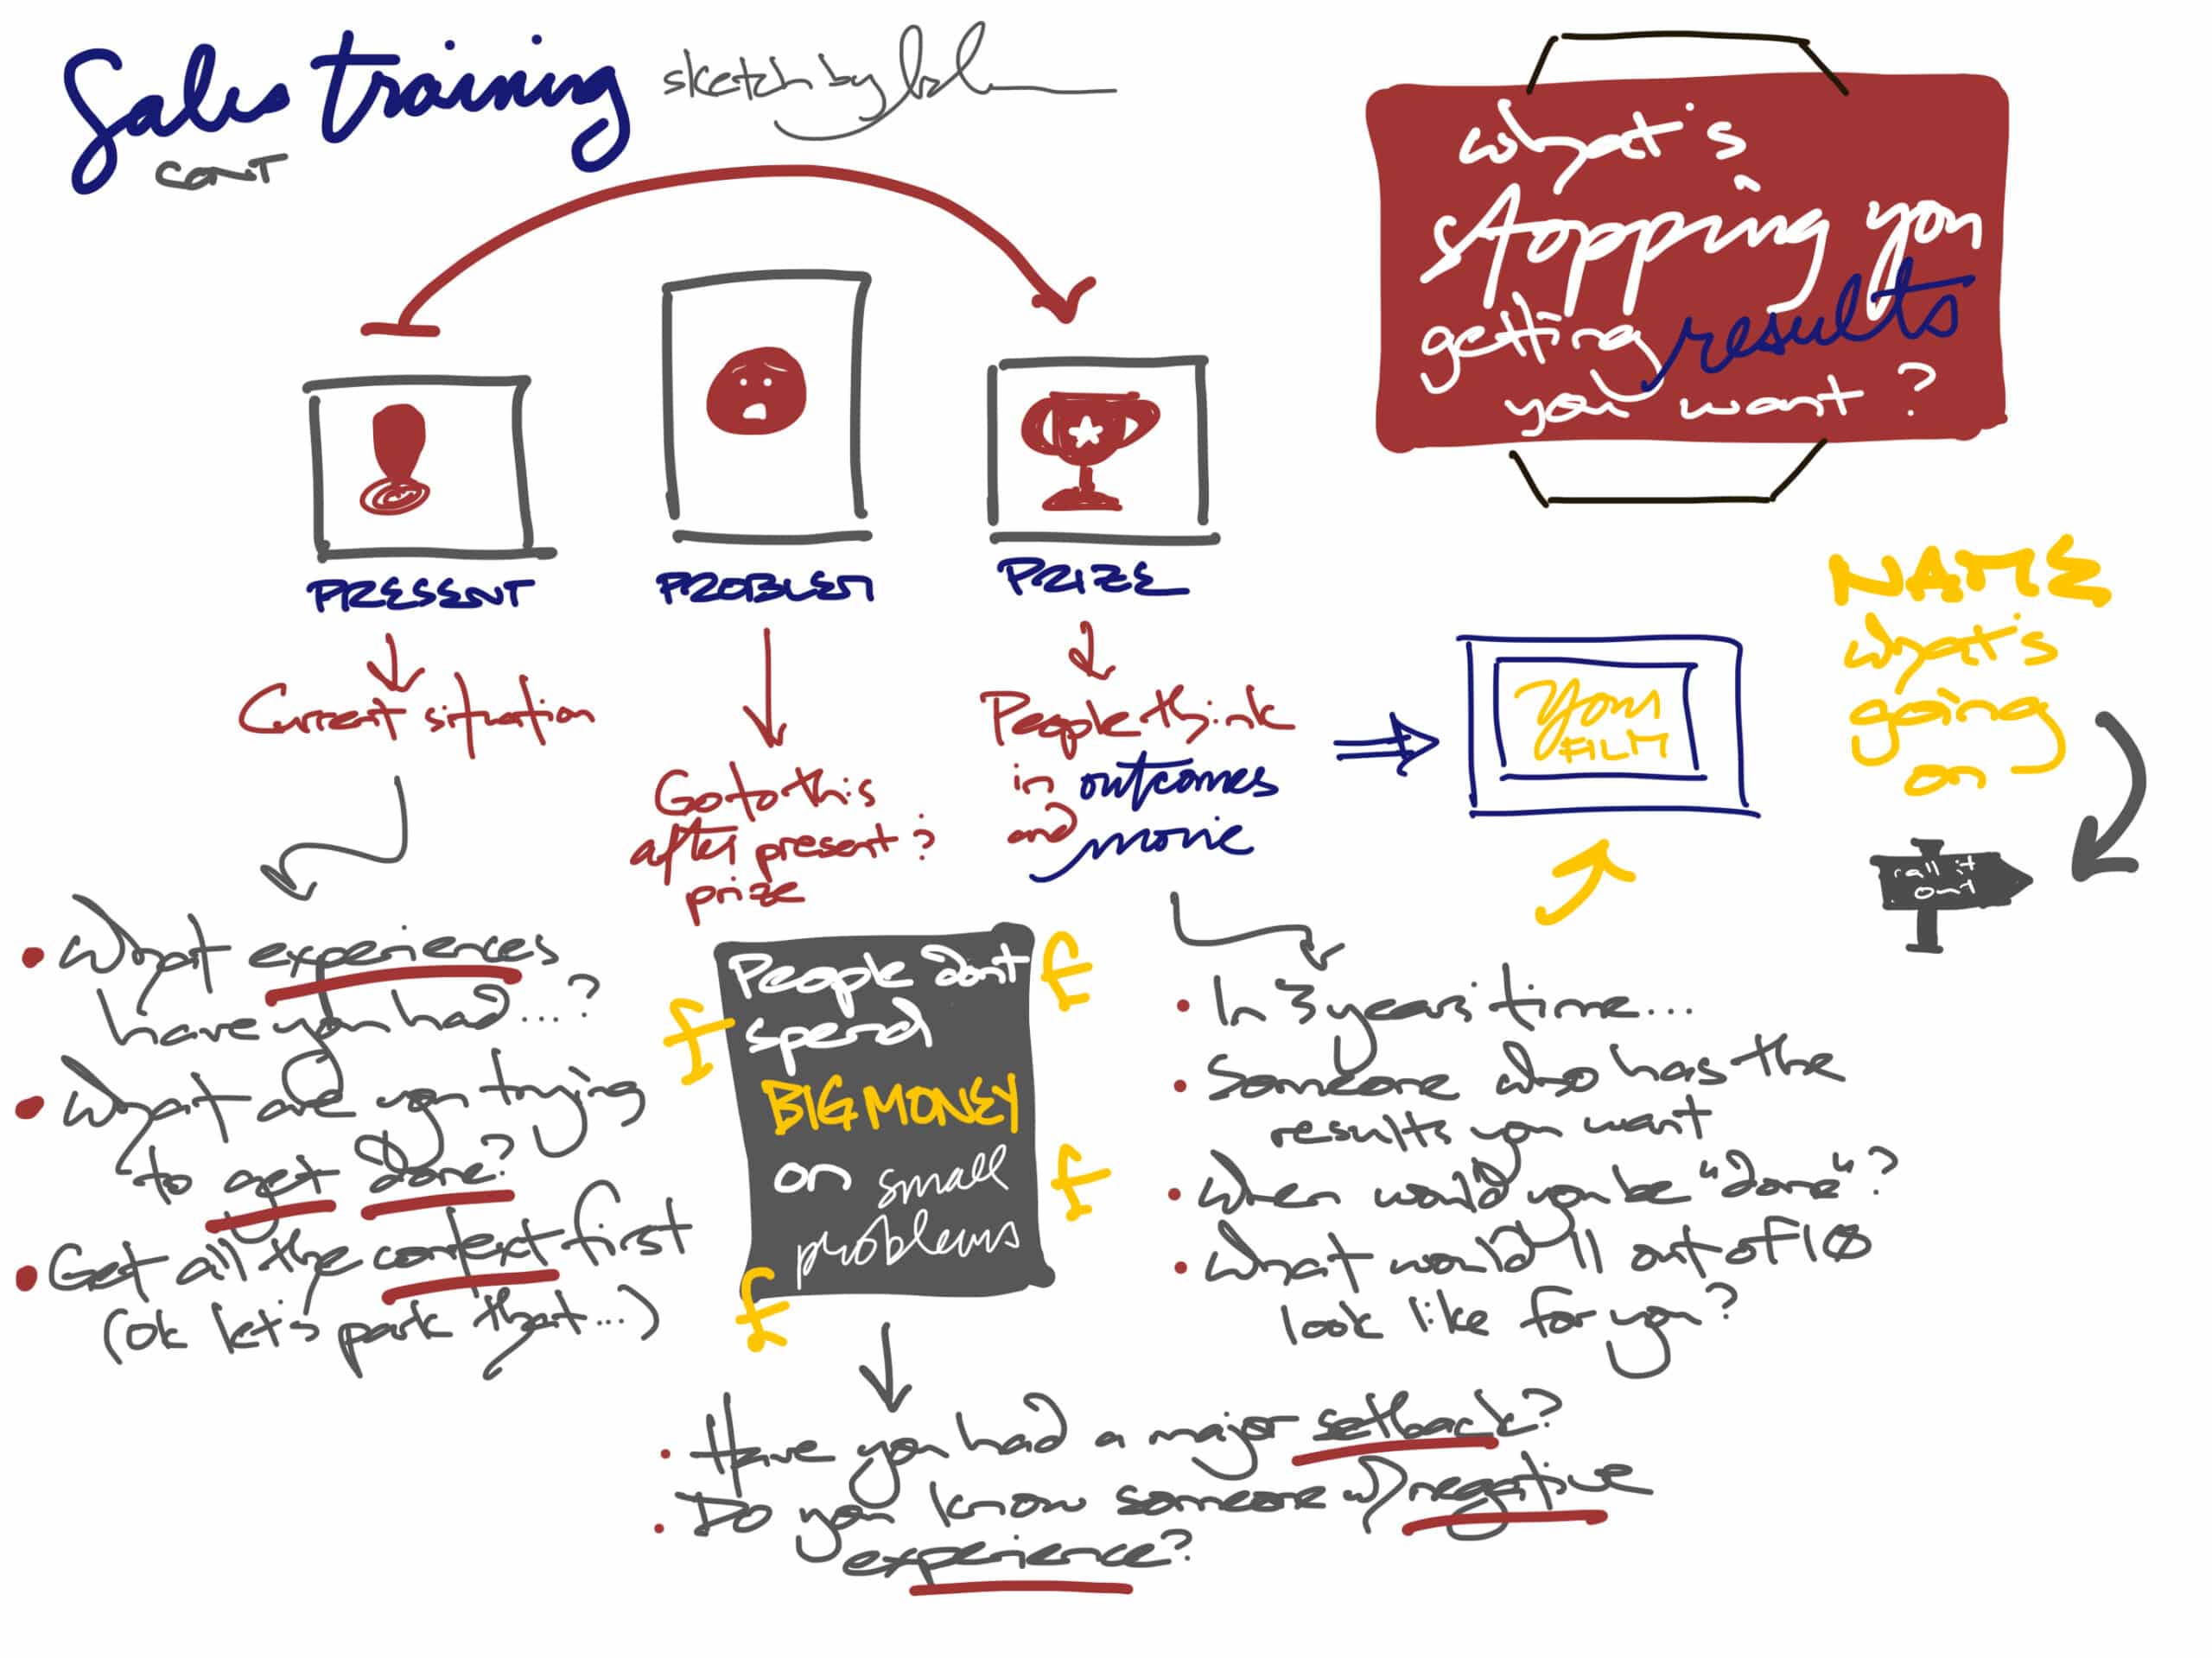 Sales training
sketch by
cont
what's
stopping you
getting results
you want?
PRESENT
PROBLEM
PRIZE
Current situation
Go to this
after present &
prize
People think
in outcomes
and movie
Your
FILM
NAME
what's
going
on
call it
out
• What experiences
have you had...?
• What are you trying
to get done?
• Get all the context first
(ok let's park that...)
People don't
spend
BIG MONEY
on small
problems
£
£
£
£
• In 3 years' time...
• Someone who has the
results you want
• When would you be "done"?
• What would 11 out of 10
look like for you?
• Have you had a major setback?
• Do you know someone w/ negative
experience?